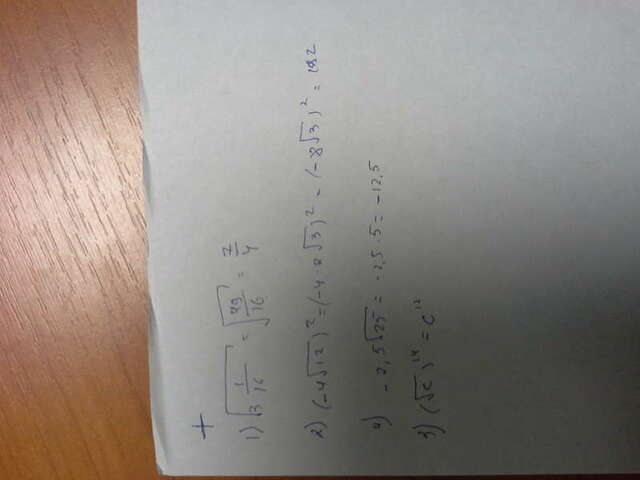 +
1) √3 1/16 = √49/16 = 7/4
2) (-4√12)² = (-4·2√3)² = (-8√3)² = 192
4) -2,5√25 = -2,5·5 = -12,5
3) (√c)¹⁴ = c¹²